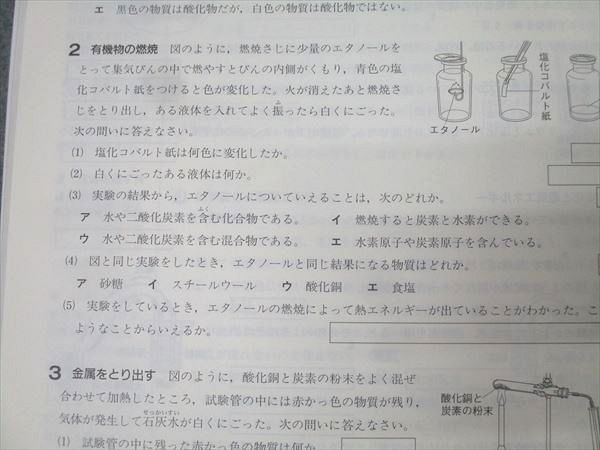 エ 黒色の物質は酸化物だが，白色の物質は酸化物ではない。
2 有機物の燃焼 図のように，燃焼さじに少量のエタノールを
とって集気びんの中で燃やすとびんの内側がくもり，青色の塩
化コバルト紙をつけると色が変化した。火が消えたあと燃焼さ
じをとり出し，ある液体を入れてよく振ったら白くにごった。
ふ
次の問いに答えなさい。
エタノール
塩化コバルト紙
(1) 塩化コバルト紙は何色に変化したか。
(2) 白くにごったある液体は何か。
(3) 実験の結果から，エタノールについていえることは，次のどれか。
ア 水や二酸化炭素を含む化合物である。 イ 燃焼すると炭素と水素ができる。
ふく
ウ 水や二酸化炭素を含む混合物である。 エ 水素原子や炭素原子を含んでいる。
(4) 図と同じ実験をしたとき，エタノールと同じ結果になる物質はどれか。
ア 砂糖 イ スチールウール ウ 酸化銅 エ 食塩
(5) 実験をしているとき，エタノールの燃焼によって熱エネルギーが出ていることがわかった。こ
ようなことからいえるか。
3 金属をとり出す 図のように，酸化銅と炭素の粉末をよく混ぜ
合わせて加熱したところ，試験管の中には赤かっ色の物質が残り，
せっかいすい
気体が発生して石灰水が白くにごった。次の問いに答えなさい。
酸化銅と
炭素の粉末
(1) 試験管の中に残った赤かっ色の物質は何か